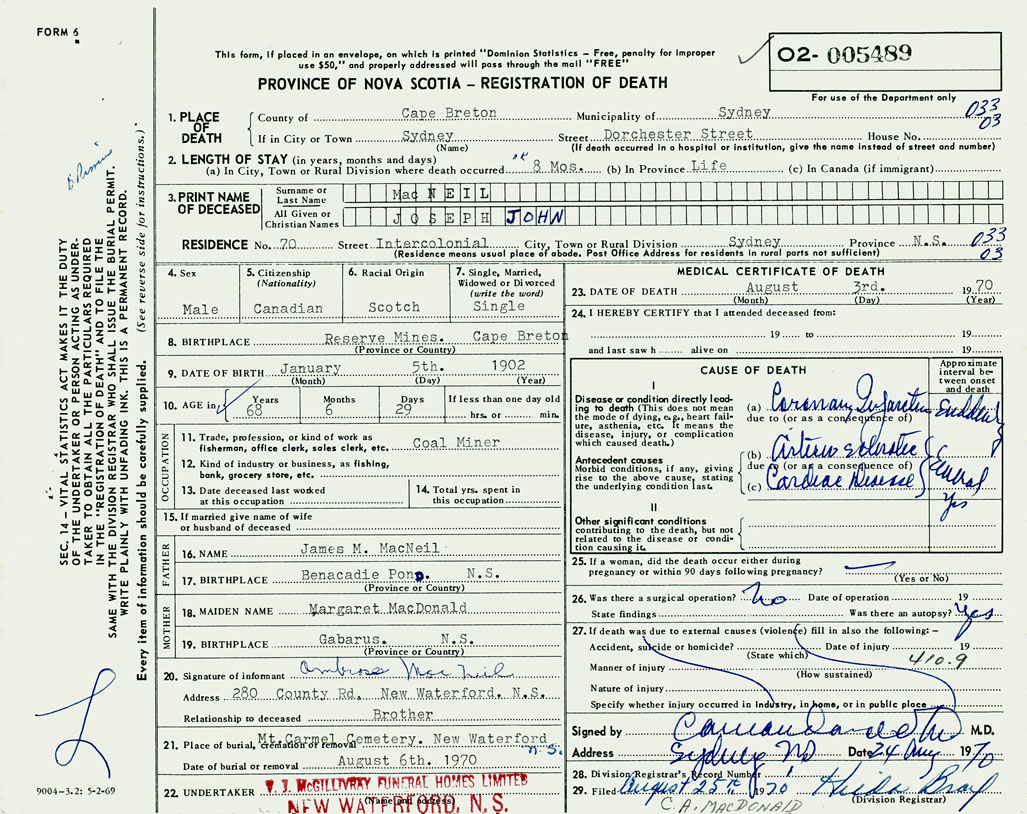 FORM 6
This form, if placed in an envelope, on which is printed "Dominion Statistics – Free, penalty for improper
use $50," and properly addressed will pass through the mail "FREE"
PROVINCE OF NOVA SCOTIA – REGISTRATION OF DEATH
O2- 005489
For use of the Department only
033
03
1. PLACE OF DEATH
County of Cape Breton Municipality of Sydney
If in City or Town Sydney Street Dorchester Street House No.
(Name) (If death occurred in a hospital or institution, give the name instead of street and number)
2. LENGTH OF STAY (in years, months and days)
(a) In City, Town or Rural Division where death occurred OK 8 Mos. (b) In Province Life (c) In Canada (if immigrant)
3. PRINT NAME OF DECEASED
Surname or Last Name MacNEIL
All Given or Christian Names JOSEPH JOHN
RESIDENCE No. 70 Street Intercolonial City, Town or Rural Division Sydney Province N.S. 033
(Residence means usual place of abode. Post Office Address for residents in rural parts not sufficient) 03
4. Sex
Male
5. Citizenship
(Nationality)
Canadian
6. Racial Origin
Scotch
7. Single, Married,
Widowed or Divorced
(write the word)
Single
8. BIRTHPLACE Reserve Mines. Cape Breton
(Province or Country)
9. DATE OF BIRTH January 5th. 1902
(Month) (Day) (Year)
10. AGE in
Years Months Days If less than one day old
68 6 29 hrs. or min.
OCCUPATION
11. Trade, profession, or kind of work as
fisherman, office clerk, sales clerk, etc. Coal Miner
12. Kind of industry or business, as fishing,
bank, grocery store, etc.
13. Date deceased last worked
at this occupation
14. Total yrs. spent in
this occupation
15. If married give name of wife
or husband of deceased
FATHER
16. NAME James M. MacNeil
17. BIRTHPLACE Benacadie Pond. N.S.
(Province or Country)
MOTHER
18. MAIDEN NAME Margaret MacDonald
19. BIRTHPLACE Gabarus. N.S.
(Province or Country)
20. Signature of informant Ambrose MacNeil
Address 280 County Rd, New Waterford. N.S.
Relationship to deceased Brother
21. Place of burial, cremation or removal Mt.Carmel Cemetery. New Waterford
N.S.
Date of burial or removal August 6th. 1970
22. UNDERTAKER V. J. McGILLIVRAY FUNERAL HOMES LIMITED
(Name and address)
NEW WATERFORD, N. S.
MEDICAL CERTIFICATE OF DEATH
23. DATE OF DEATH August 3rd. 1970
(Month) (Day) (Year)
24. I HEREBY CERTIFY that I attended deceased from:
19 to 19
and last saw h alive on 19
CAUSE OF DEATH
Approximate
interval be-
tween onset
and death
I
Disease or condition directly lead-
ing to death (This does not
mean the mode of dying, e.g., heart fail-
ure, asthenia, etc. It means the
disease, injury, or complication
which caused death.)
(a) Coronary Infarction Suddenly
due to (or as a consequence of)
Antecedent causes
Morbid conditions, if any, giving
rise to the above cause, stating
the underlying condition last.
(b) Arteriosclerotic
due to (or as a consequence of)
(c) Cardiac Disease
Several
Yrs
II
Other significant conditions
contributing to the death, but not
related to the disease or condi-
tion causing it.
25. If a woman, did the death occur either during
pregnancy or within 90 days following pregnancy?
(Yes or No)
26. Was there a surgical operation? No Date of operation 19
State findings Was there an autopsy? Yes
27. If death was due to external causes (violence) fill in also the following:–
Accident, suicide or homicide? Date of injury 19
(State which) 410.9
Manner of injury
(How sustained)
Nature of injury
Specify whether injury occurred in industry, in home, or in public place
Signed by M.D.
Address Sydney NS Date 24 Aug 1970
28. Division Registrar's Record Number
29. Filed August 25th 1970 Hilda
(Division Registrar)
C. A. MACDONALD
SEC. 14 – VITAL STATISTICS ACT MAKES IT THE DUTY
OF THE UNDERTAKER OR PERSON ACTING AS UNDER-
TAKER TO OBTAIN ALL THE PARTICULARS REQUIRED
IN THE "REGISTRATION OF DEATH" AND TO FILE THE
SAME WITH THE DIVISION REGISTRAR WHO SHALL ISSUE THE BURIAL PERMIT.
WRITE PLAINLY WITH UNFADING INK. THIS IS A PERMANENT RECORD.
Every item of information should be carefully supplied. (See reverse side for instructions.)
9004-3.2: 5-2-69